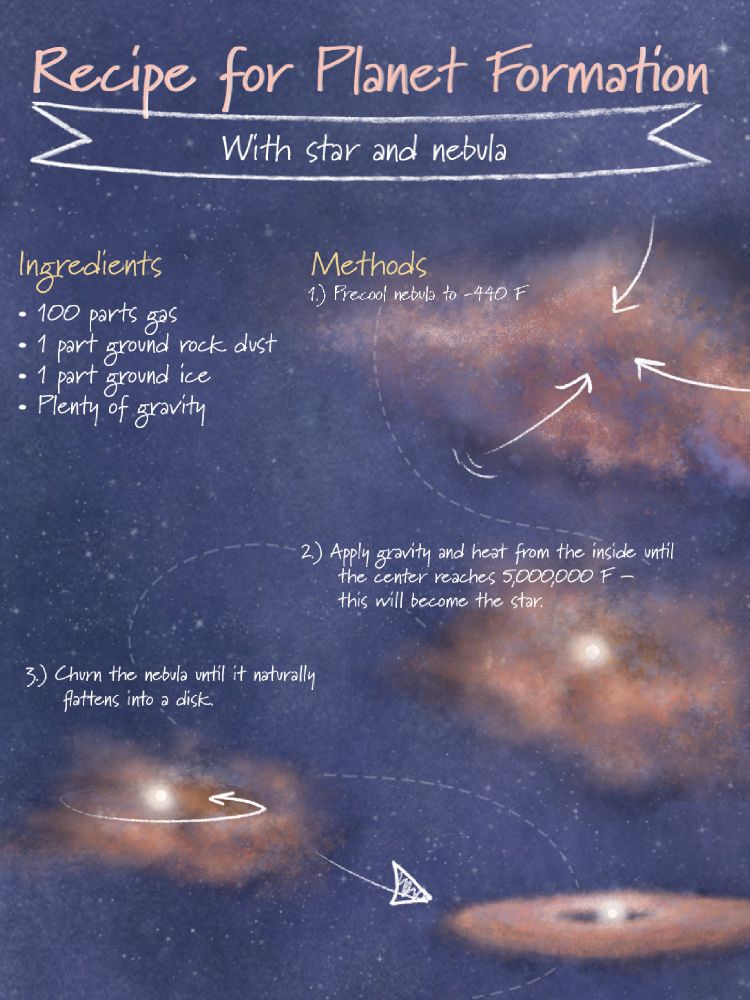 Recipe for Planet Formation
With star and nebula
Ingredients
• 100 parts gas
• 1 part ground rock dust
• 1 part ground ice
• Plenty of gravity
Methods
1.) Precool nebula to -440 F
2.) Apply gravity and heat from the inside until
the center reaches 5,000,000 F –
this will become the star.
3.) Churn the nebula until it naturally
flattens into a disk.